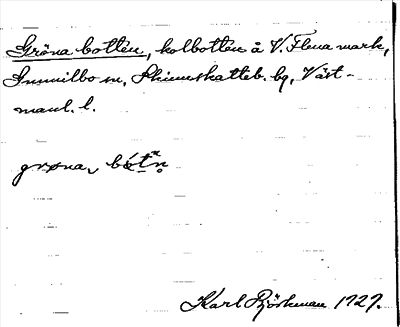 Gröna botten, kolbotten å V. Flena mark,
Gunnilbo sn, Skinnskatteb. bg, Väst-
manl. l.
grøna, bót̥n̥
Karl Björkman 1927.